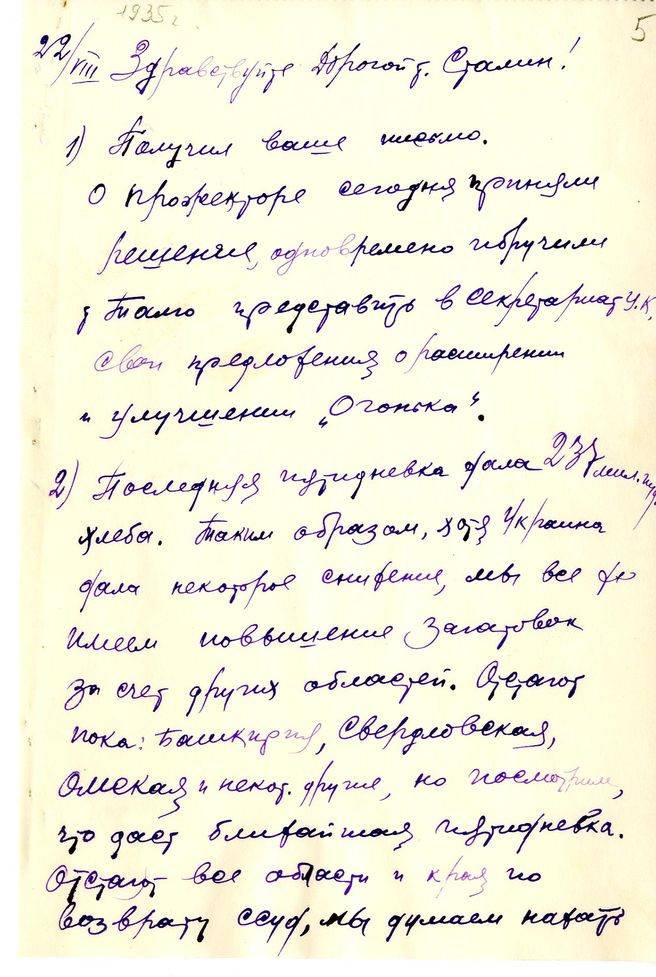 1935 г
5
22/VIII Здравствуйте Дорогой т. Сталин!
1) Получил ваше письмо.
О прожекторе сегодня приняли
решение, одновремено поручили
т Талю представить в секретариат Ц.К.
свои предложения о расширении
и улучшении „Огонька".
2) Последняя пятидневка дала 237 мил. пуд.
хлеба. Таким образом, хотя Украина
дала некоторое снижение, мы все же
имеем повышение заготовок
за счет других областей. Отстают
пока: Башкирия, Свердловская,
Омская и некот. другие, но посмотрим,
что даст ближайшая пятидневка.
Отстают все области и края по
возврату ссуд, мы думаем нажать